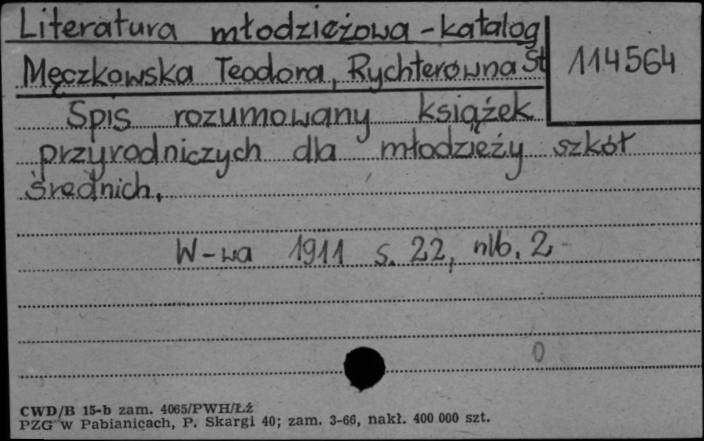 Literatura młodzieżowa - katalog
114564
Męczkowska Teodora, Rychterówna St
Spis rozumowany książek
przyrodniczych dla młodzieży szkół
średnich.
W-wa 1911 s. 22, nlb. 2
0
CWD/B 15-b zam. 4065/PWH/Łź
PZG w Pabianicach, P. Skargi 40; zam. 3-66, nakł. 400 000 szt.